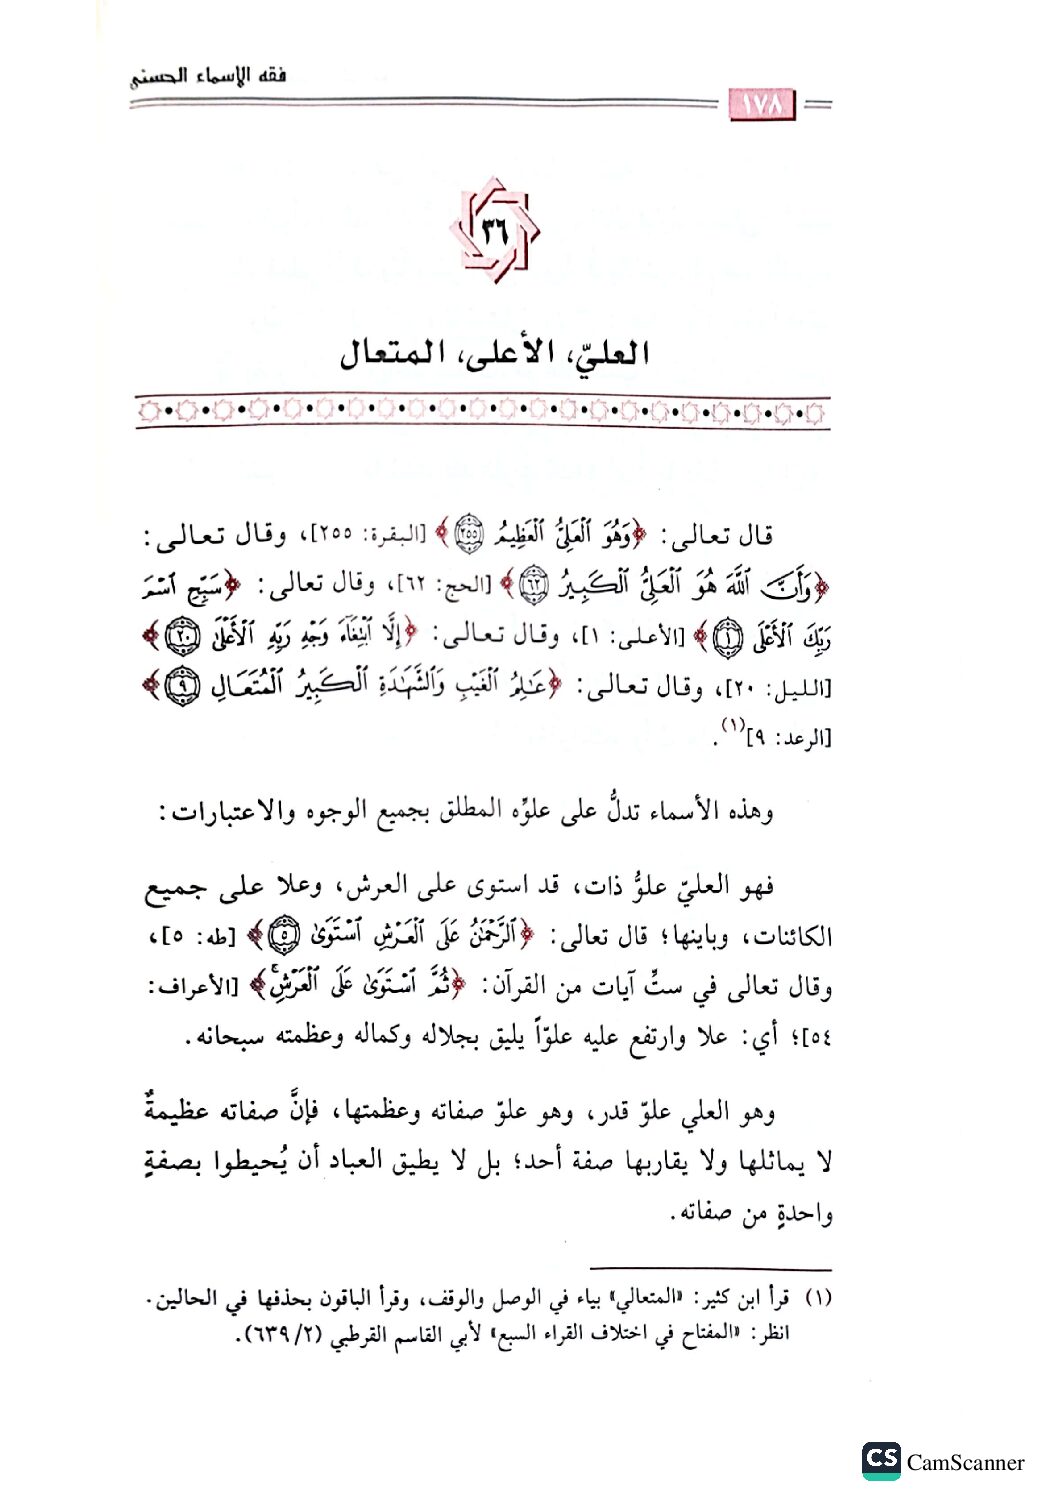 فقه الأسماء الحسنى
١٧٨
٣٦
العليّ، الأعلى، المتعال
قال تعالى: ﴿وَهُوَ ٱلْعَلِيُّ ٱلْعَظِيمُ ٢٥٥﴾ [البقرة: ٢٥٥]، وقال تعالى:
﴿وَأَنَّ ٱللَّهَ هُوَ ٱلْعَلِيُّ ٱلْكَبِيرُ ٦٢﴾ [الحج: ٦٢]، وقال تعالى: ﴿سَبِّحِ ٱسْمَ
رَبِّكَ ٱلْأَعْلَى ١﴾ [الأعلى: ١]، وقال تعالى: ﴿إِلَّا ٱبْتِغَآءَ وَجْهِ رَبِّهِ ٱلْأَعْلَىٰ ٢٠﴾
[الليل: ٢٠]، وقال تعالى: ﴿عَٰلِمُ ٱلْغَيْبِ وَٱلشَّهَٰدَةِ ٱلْكَبِيرُ ٱلْمُتَعَالِ ٩﴾
[الرعد: ٩](١).
وهذه الأسماء تدلُّ على علوِّه المطلق بجميع الوجوه والاعتبارات:
فهو العليّ علوُّ ذات، قد استوى على العرش، وعلا على جميع
الكائنات، وباينها؛ قال تعالى: ﴿ٱلرَّحْمَٰنُ عَلَى ٱلْعَرْشِ ٱسْتَوَىٰ ٥﴾ [طه: ٥]،
وقال تعالى في ستِّ آيات من القرآن: ﴿ثُمَّ ٱسْتَوَىٰ عَلَى ٱلْعَرْشِۚ﴾ [الأعراف:
٥٤]؛ أي: علا وارتفع عليه علوّاً يليق بجلاله وكماله وعظمته سبحانه.
وهو العلي علوّ قدر، وهو علوّ صفاته وعظمتها، فإنَّ صفاته عظيمةٌ
لا يماثلها ولا يقاربها صفة أحد؛ بل لا يطيق العباد أن يُحيطوا بصفةٍ
واحدةٍ من صفاته.
(١) قرأ ابن كثير: «المتعالي» بياء في الوصل والوقف، وقرأ الباقون بحذفها في الحالين.
انظر: «المفتاح في اختلاف القراء السبع» لأبي القاسم القرطبي (٢/ ٦٣٩).
CS CamScanner